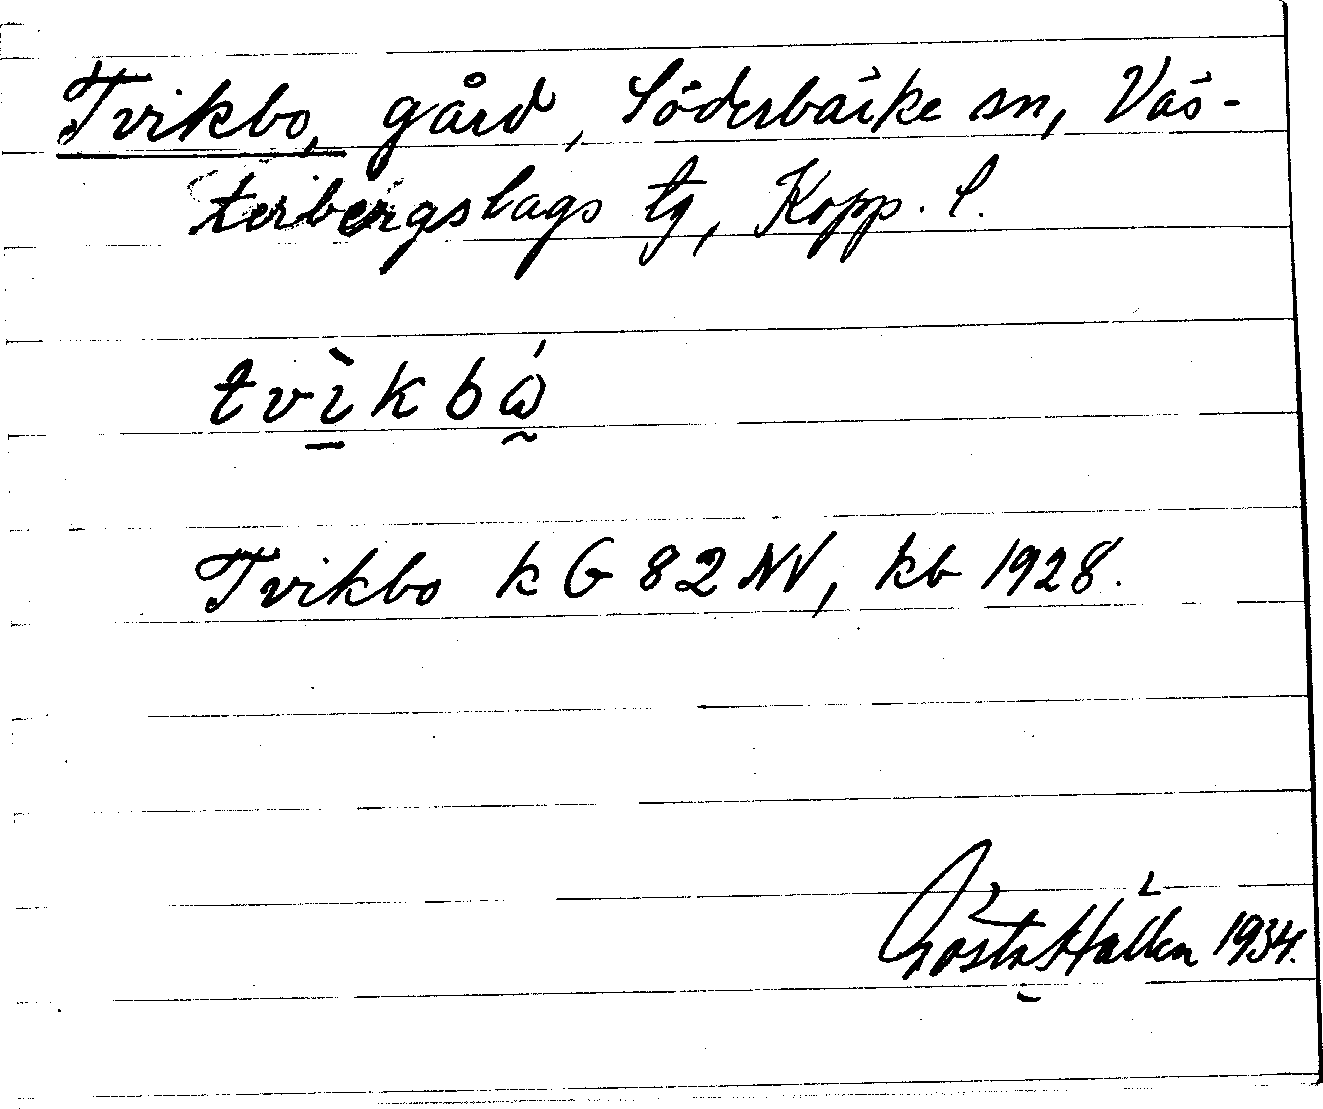 Tvikbo, gård, Söderbärke sn, Väs-
terbergslags tg, Kopp. l.
tvìkbó̰
Tvikbo k G 82 NV, kb 1928.
Gösta Hallén 1934.